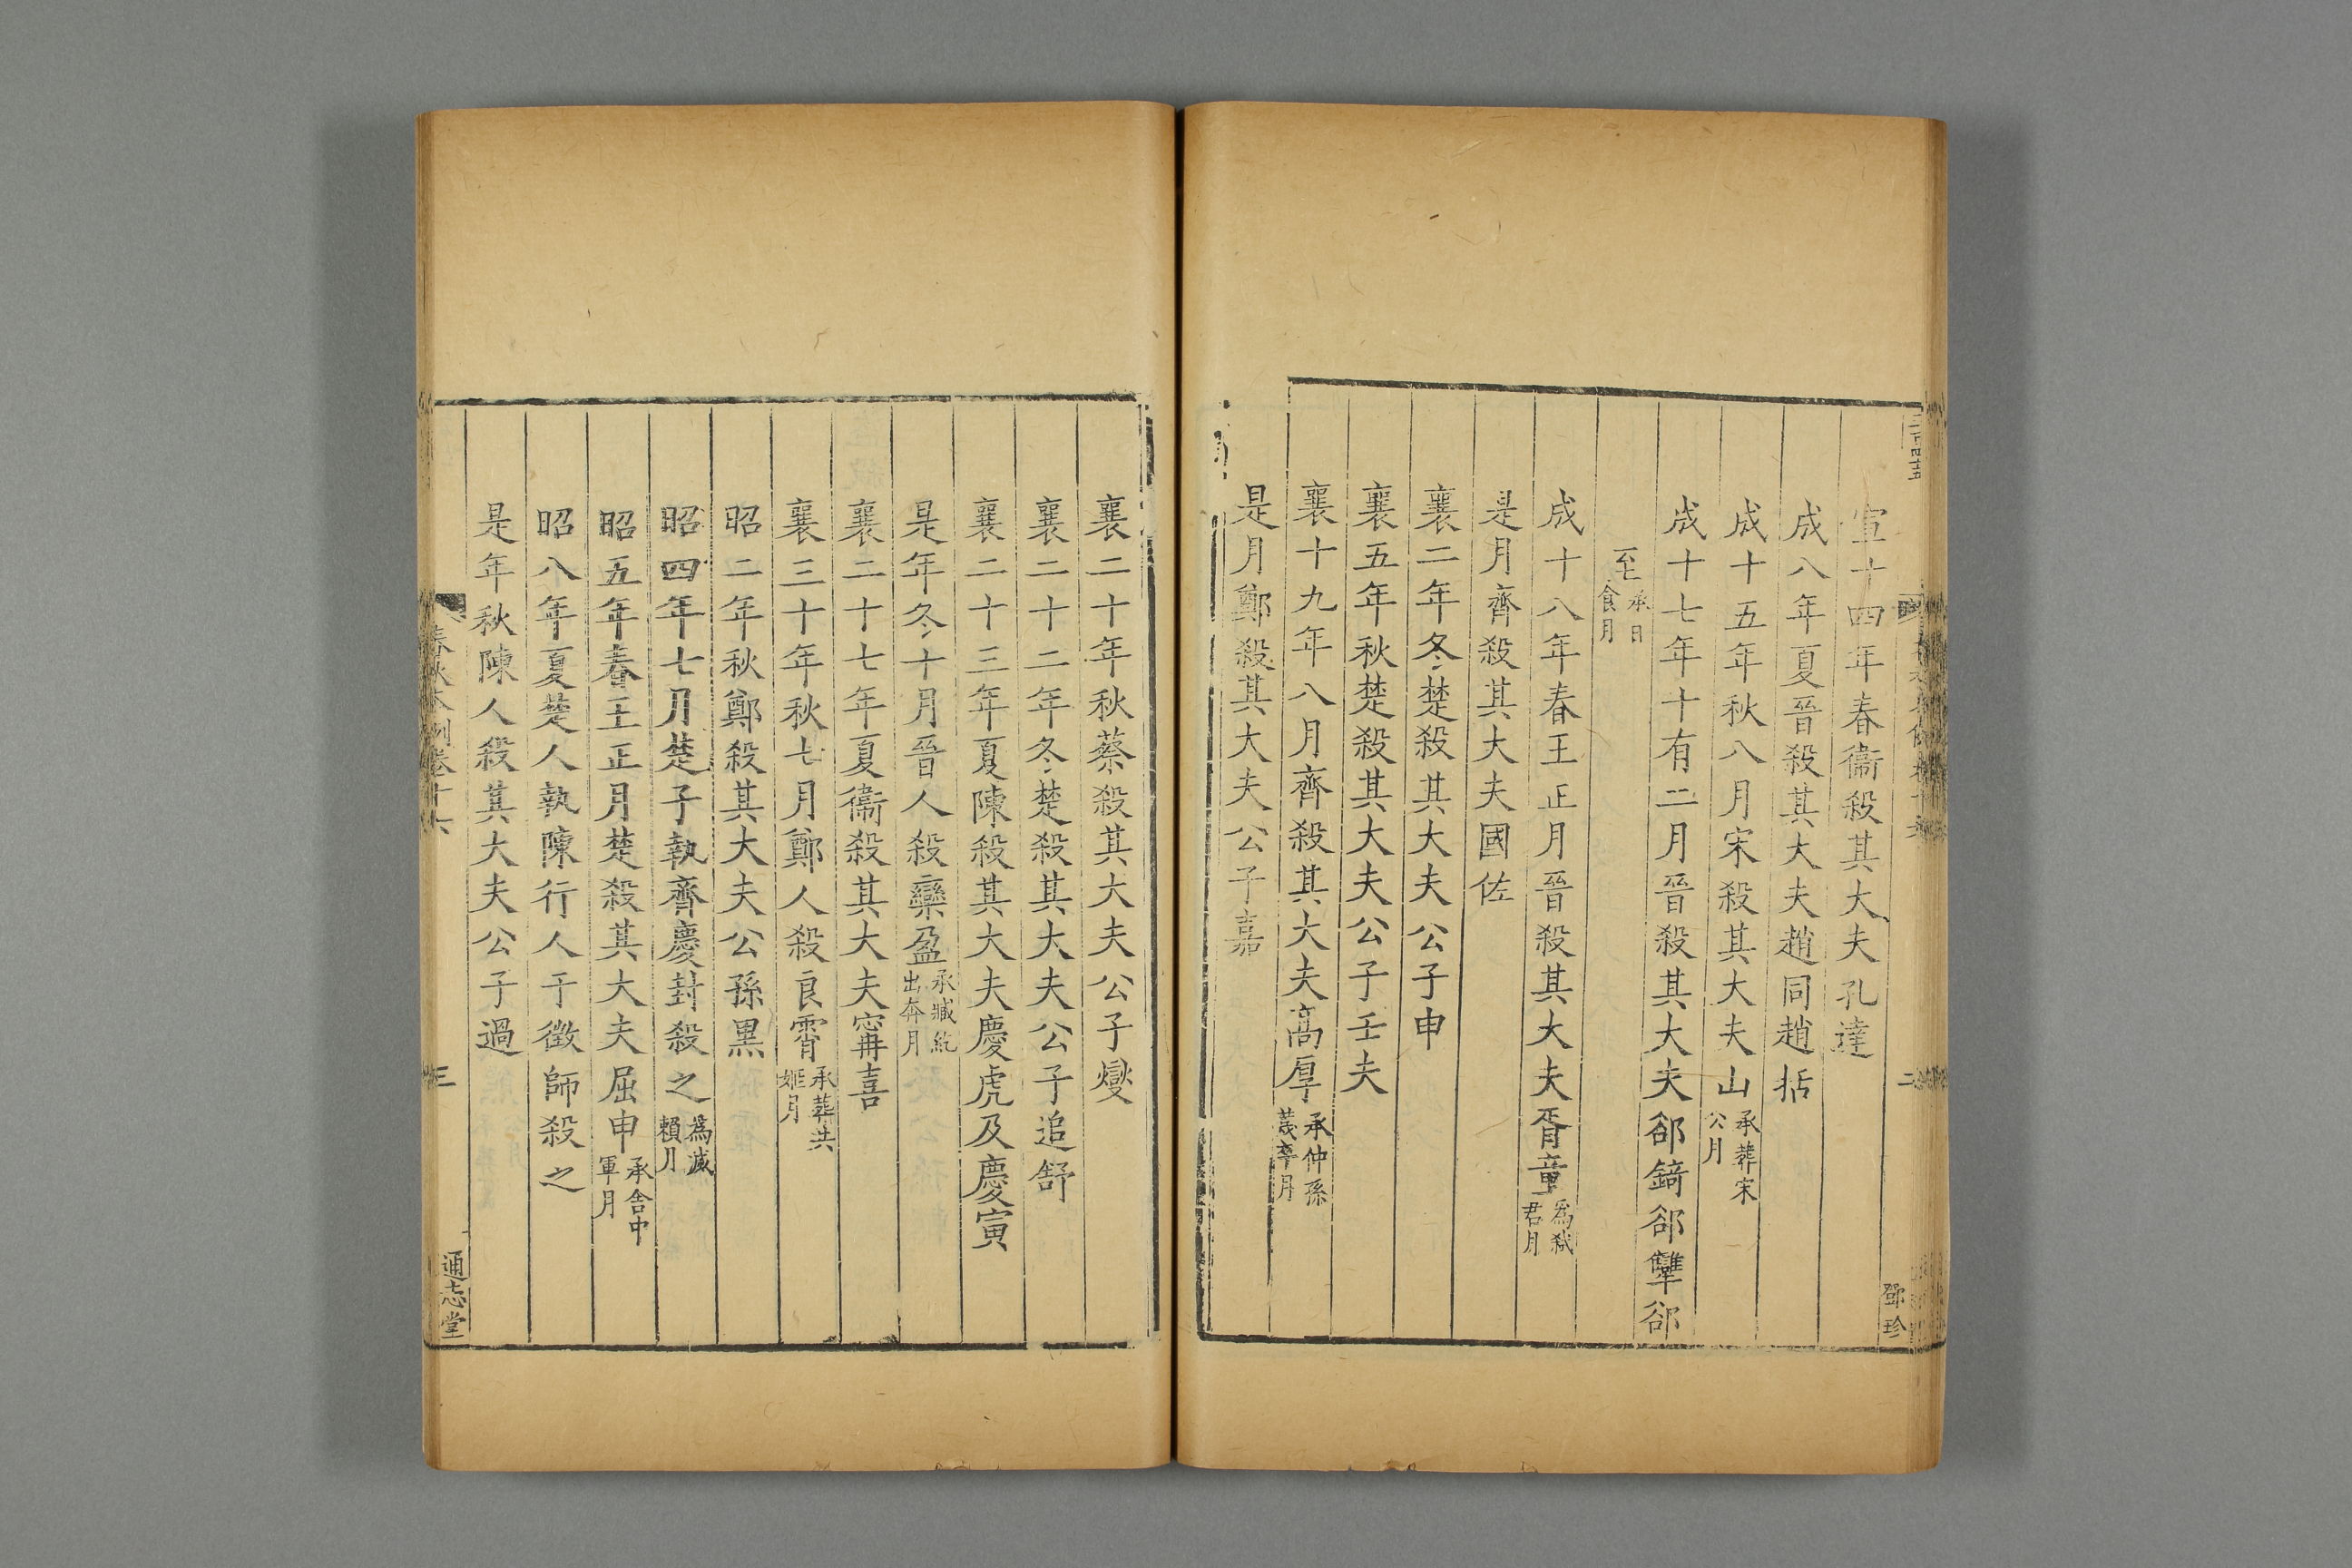 宣十四年春衞殺其大夫孔達
成八年夏晉殺其大夫趙同趙括
成十五年秋八月宋殺其大夫山承葬宋公月
成十七年十有二月晉殺其大夫郤錡郤犫郤
至承日食月
成十八年春王正月晉殺其大夫胥童為弑君月
是月齊殺其大夫國佐
襄二年冬楚殺其大夫公子申
襄五年秋楚殺其大夫公子壬夫
襄十九年八月齊殺其大夫高厚承仲孫蔑卒月
是月鄭殺其大夫公子嘉
二
鄧珍
襄二十年秋蔡殺其大夫公子燮
襄二十二年冬楚殺其大夫公子追舒
襄二十三年夏陳殺其大夫慶虎及慶寅
是年冬十月晉人殺欒盈承臧紇出奔月
襄二十七年夏衞殺其大夫甯喜
襄三十年秋七月鄭人殺良霄承葬共姬月
昭二年秋鄭殺其大夫公孫黑
昭四年七月楚子執齊慶封殺之為滅賴月
昭五年春王正月楚殺其大夫屈申承舍中軍月
昭八年夏楚人執陳行人干徵師殺之
是年秋陳人殺其大夫公子過
春秋本例卷十六
三
通志堂